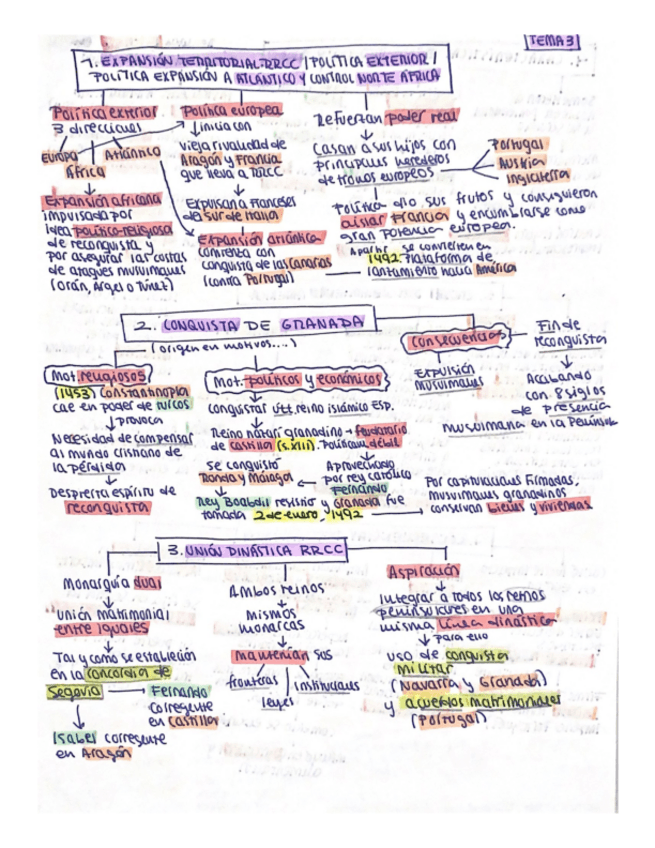 TEMA 3
1. EXPANSIÓN TERRITORIAL RRCC / POLÍTICA EXTERIOR /
POLÍTICA EXPANSIÓN A ATLÁNTICO Y CONTROL NORTE ÁFRICA
Política exterior
3 direcciones
Europa
África
Atlántico
Expansión africana
impulsada por
idea político-religiosa
de reconquista y
por asegurar las costas
de ataques musulmanes
(Orán, Argel o Túnez)
Política europea
inicia con
vieja rivalidad de
Aragón y Francia
que lleva a RRCC
Expulsan a franceses
de sur de Italia
Expansión atlántica
comienza con
conquista de las Canarias
(contra Portugal)
Refuerzan poder real
Casan a sus hijos con
principales herederos
de tronos europeos
Portugal
Austria
Inglaterra
Política dio sus frutos y consiguieron
aislar Francia y encumbrarse como
gran potencia europea.
A partir se convierten en
1492. plataforma de
lanzamiento hacia América
2. CONQUISTA DE GRANADA
(origen en motivos...)
Mot. religiosos
(1453) Constantinopla
cae en poder de turcos
provoca
Necesidad de compensar
al mundo cristiano de
la pérdida
Despierta espíritu de
reconquista
Mot. políticos y económicos
conquistar últ. reino islámico Esp.
Reino nazarí granadino → feudatario
de Castilla (s.XIII). Políticam. débil
Aprovechado
por rey católico
Fernando
se conquistó
Ronda y Málaga
Rey Boabdil resistió y Granada fue
tomada 2 de enero, 1492
Por capitulaciones firmadas,
musulmanes granadinos
conservan bienes y viviendas
Consecuencias
Expulsión
musulmanes
Fin de
reconquista
Acabando
con 8 siglos
de presencia
musulmana en la Península
3. UNIÓN DINÁSTICA RRCC
Monarquía dual
Unión matrimonial
entre iguales
Tal y como se establecían
en la concordia de
Segovia
Fernando
corregente
en Castilla
Isabel corregente
en Aragón
Ambos reinos
Mismos
monarcas
Mantenían sus
fronteras
leyes
instituciones
Aspiración
Integrar a todos los reinos
peninsulares en una
misma línea dinástica
para ello
uso de conquista
militar
(Navarra y Granada)
y acuerdos matrimoniales
(Portugal)